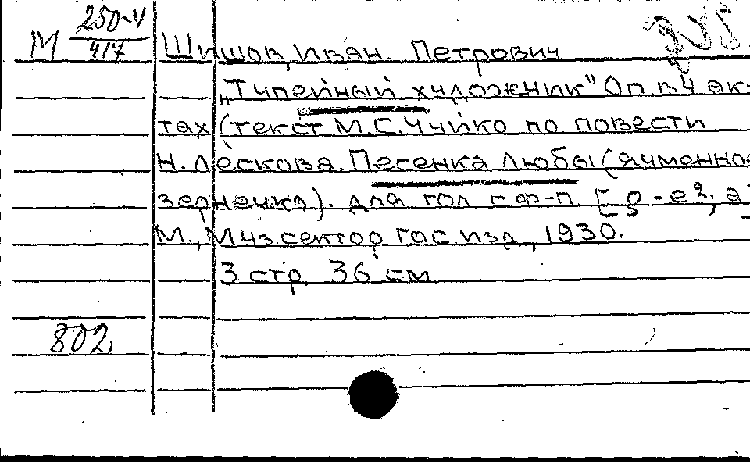 М 250-V/417
Шишов, Иван Петрович
„Тупейный художник" Оп в 4 ак-
тах (текст М.С. Чуйко по повести
Н. Лескова. Песенка Любы (ячменно-
зернечка). для гол с ф-п
М., Муз сектор Гос изд, 1930.
3 стр 36 см
802.